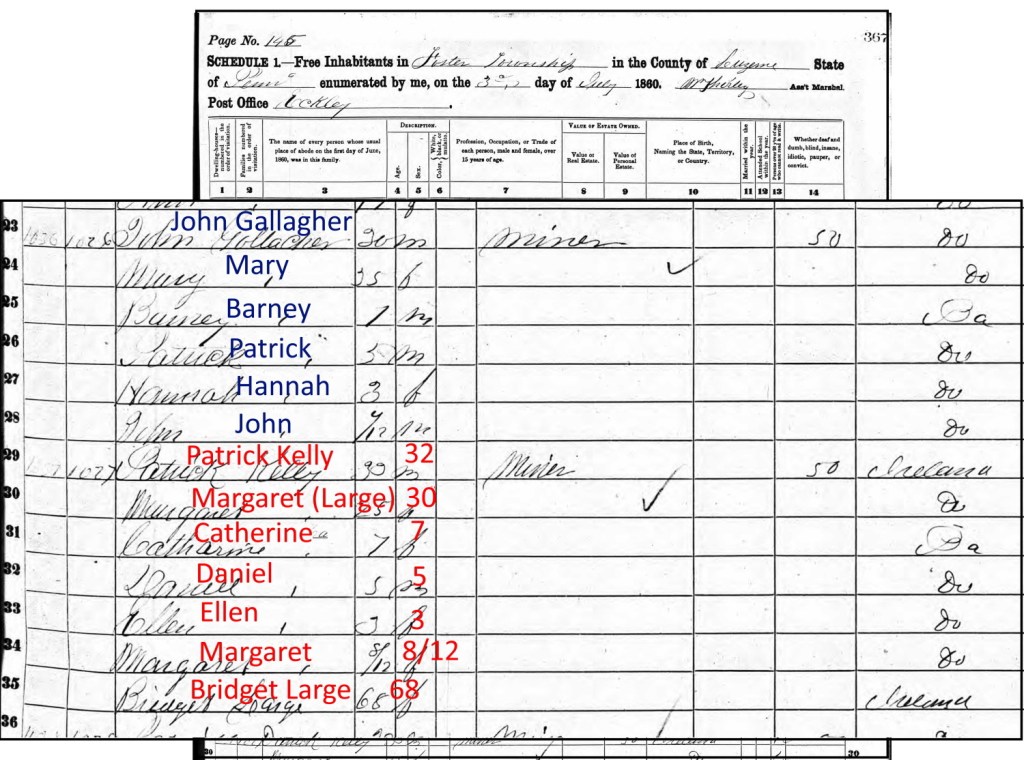 367
Page No. 145
SCHEDULE 1.—Free Inhabitants in Foster Township in the County of Luzerne State
of Penn enumerated by me, on the 3 day of July 1860. Ass't Marshal.
Post Office Eckley.
DESCRIPTION. VALUE OF ESTATE OWNED.
Dwelling-houses—numbered in the order of visitation. Families numbered in the order of visitation. The name of every person whose usual place of abode on the first day of June, 1860, was in this family. Age. Sex. Color, White, black, or mulatto. Profession, Occupation, or Trade of each person, male and female, over 15 years of age. Value of Real Estate. Value of Personal Estate. Place of Birth, Naming the State, Territory, or Country. Married within the year. Attended School within the year. Whether deaf and dumb, blind, insane, idiotic, pauper, or convict.
1 2 3 4 5 6 7 8 9 10 11 12 13 14
John Gallagher
23 1036 1026 John Gollagher 30 m Miner 50 Do
Mary
24 Mary f Do
Barney
25 Barney 7 m Pa
Patrick
26 Patrick 5 m Do
Hannah
27 Hannah 3 f Do
John
28 John /12 m Do
Patrick Kelly 32
29 Patrick Kelly m Miner 50 Ireland
Margaret (Large) 30
30 Margaret f Do
Catherine 7
31 Catharine 7 f Pa
Daniel 5
32 Daniel 5 m Do
Ellen 3
33 Ellen 3 f Do
Margaret 8/12
34 Margaret 8/12 f Do
Bridget Large 68
35 Bridget Large 68 f Ireland
36